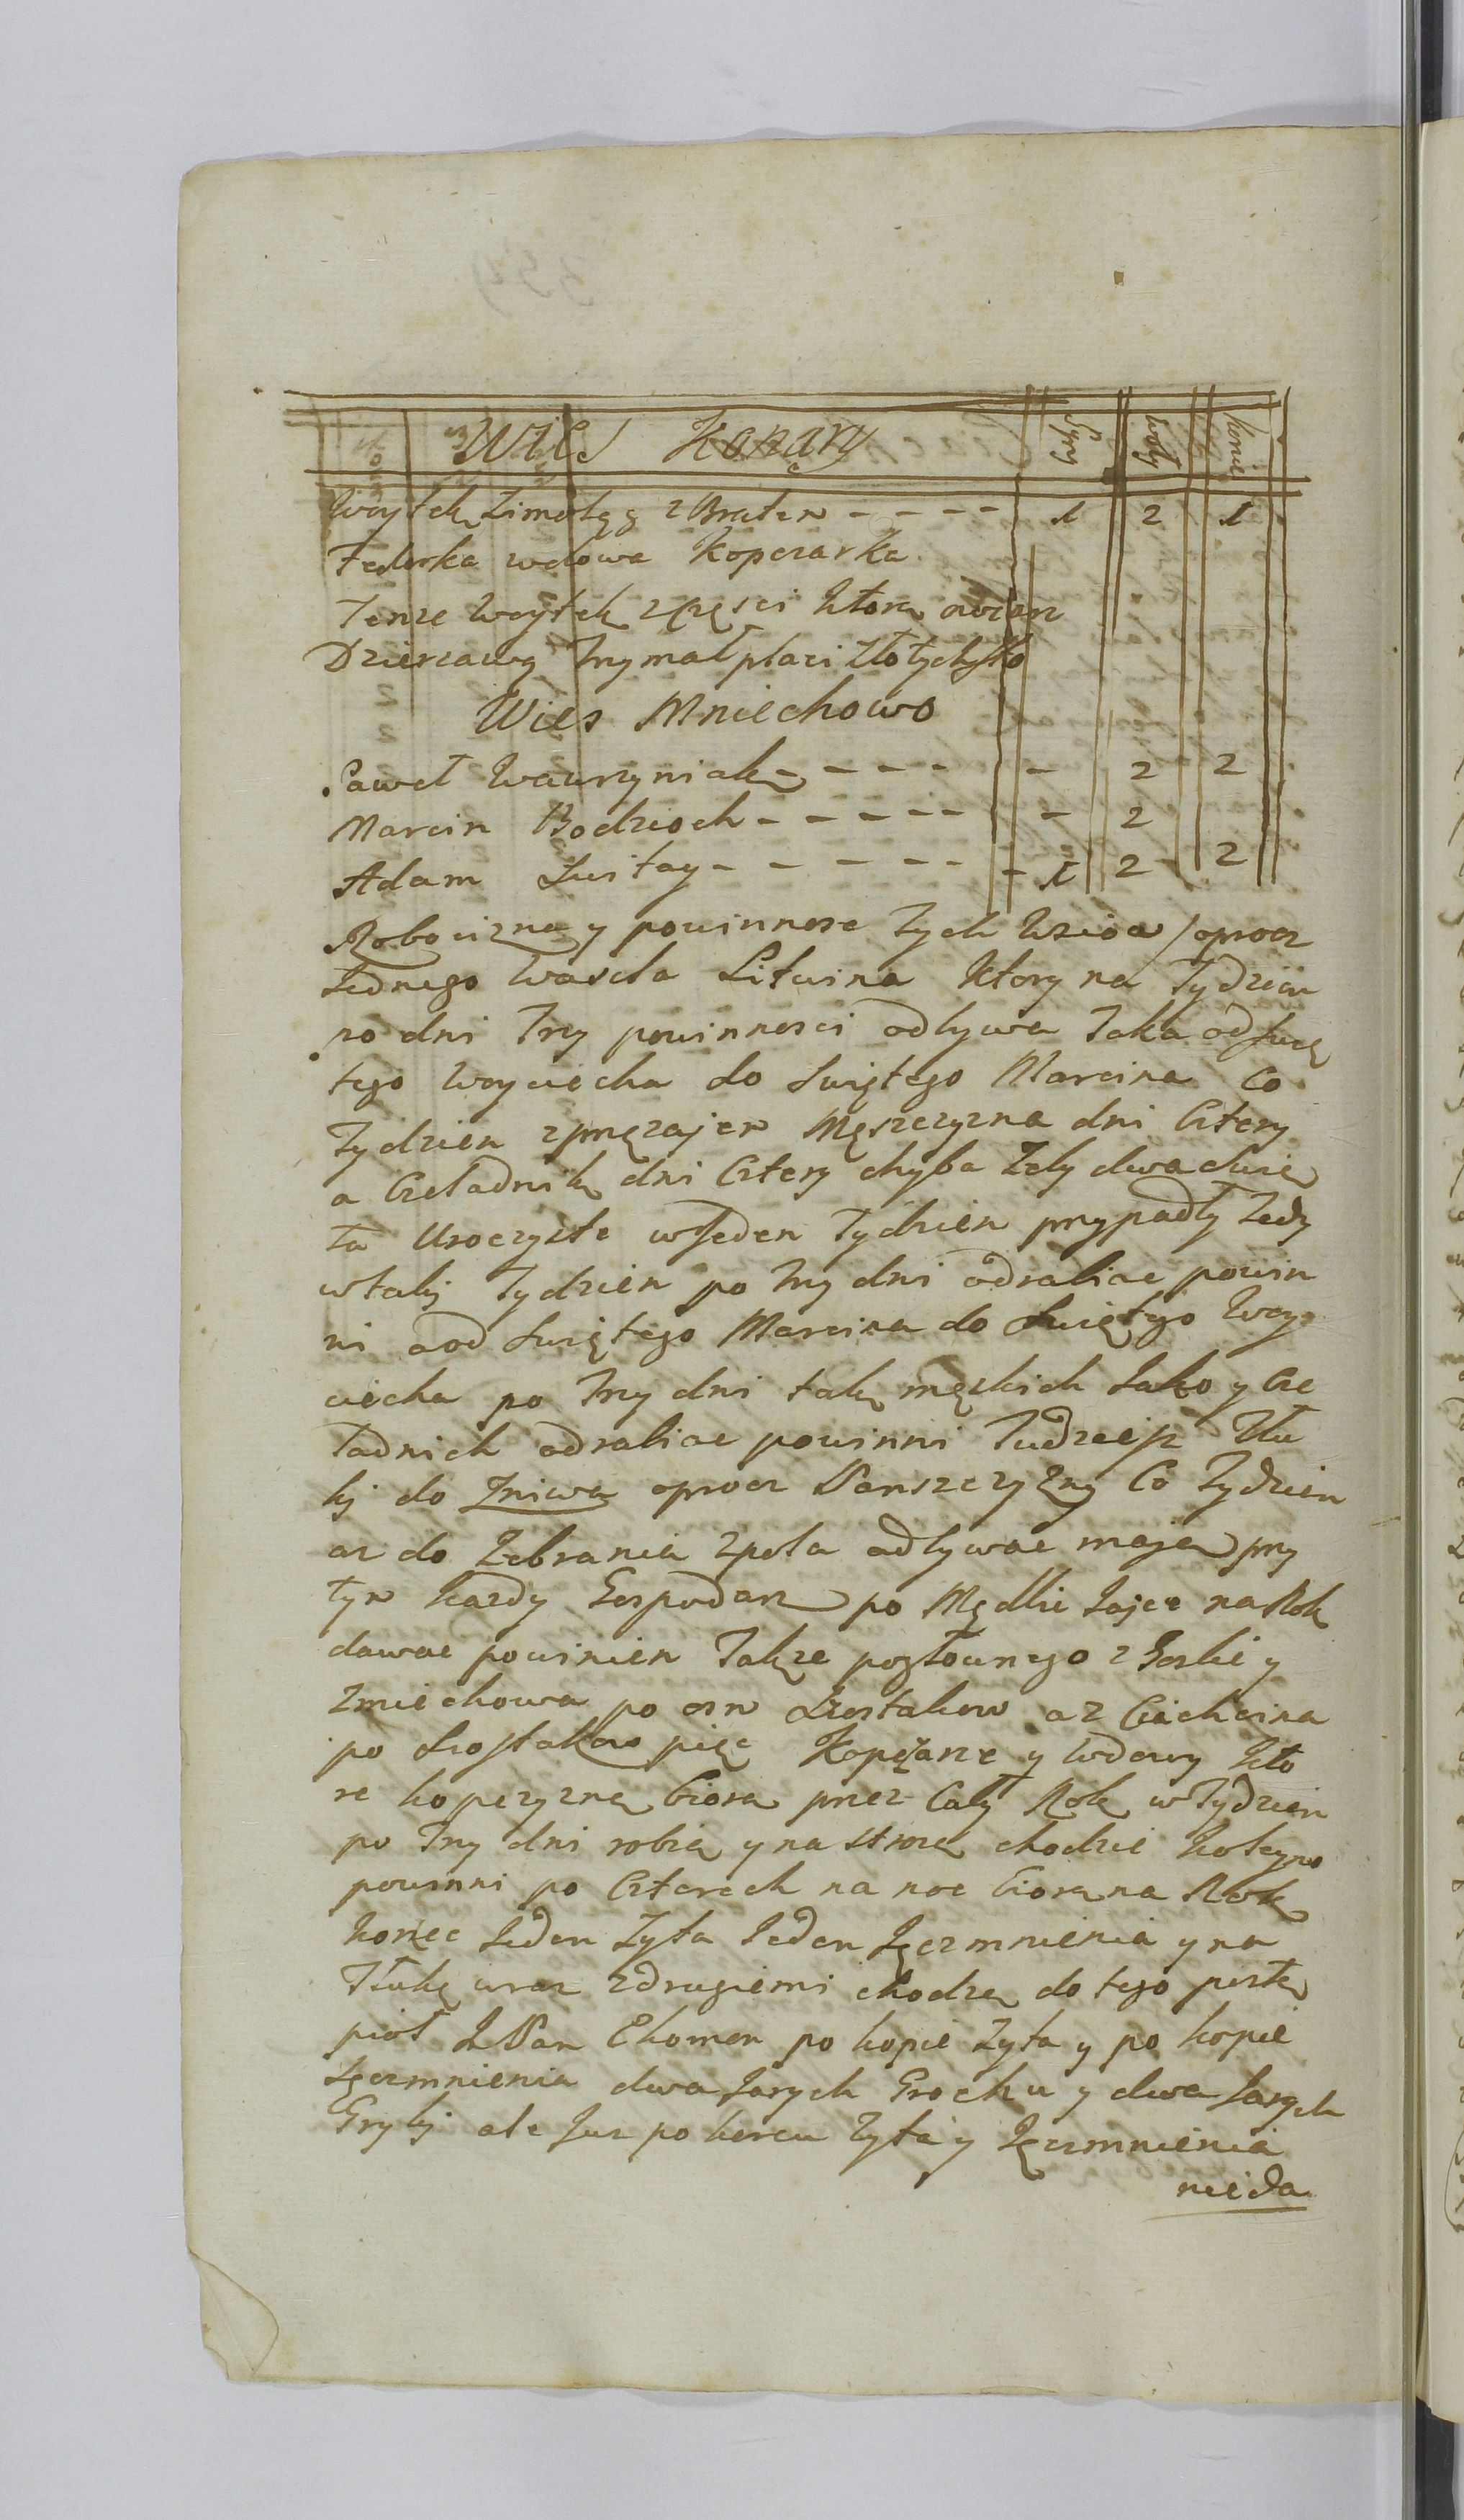 Wies Konary Syny Woły Konie
Woytek Zimoląg z Bratem - - - - 1 2 1
Fedorka wdowa Kopczarka
Tenze Woytek z części ktorą
Dzierzawą trzymał płaci Złotych
Wies Mniechowo
Paweł Wawrzyniak - - - - - 2 2
Marcin Bodzioch - - - - - - 2
Adam Switay - - - - - - 1 2 2
Robocizna y powinnosc tych Wsiow / oprocz
Jednego Wascla Litwina ktory na Tydzien
po dni Trzy powinnosci odbywa Taka od Swię
tego Woyciecha do Swiętego Marcina co
Tydzien zprzęzajem Męszczyzna dni Cztery
a Czeladnik dni Cztery chyba Zeby dwa Swię
ta Uroczyste w Jeden Tydzien przypadły tedy
w taky Tydzien po trzy dni odrabiac powin
ni a od Swiętego Marcina do Swiętego Woy
ciecha po trzy dni tak męzkich Jako y Cze
ladnich odrabiac powinni Tudzeisz Tłu
ky do Zniwa oprocz Panszczyzny Co Tydzien
az do Zebrania z pola odbywac mają przy
tym kazdy Gospodarz po Mędlu Jajec na Rok
dawac powinien Takze pogłownego z Gorki y
Zmiechowa po osm Szostakow a z Ciachcina
po Szostakow pięc Kopczarze y wdowy kto
re kopczyznę biorą przez Cały Rok w Tydzien
po Trzy dni robią y na stroza chodzic koleyno
powinni po Czterech na noc biorą na Rok
korzec Jeden Zyta Jeden Jęczmnienia y na
Tłukę wraz z drugiemi chodzą do tego postę
pioł J Pan Ekonom po kopie Zyta y po kopie
Jęczmnienia dwa Jarzych Grochu y dwa Jarzych
Gryky ale Juz po korcu Zyta y Jęczmnienia
nie da